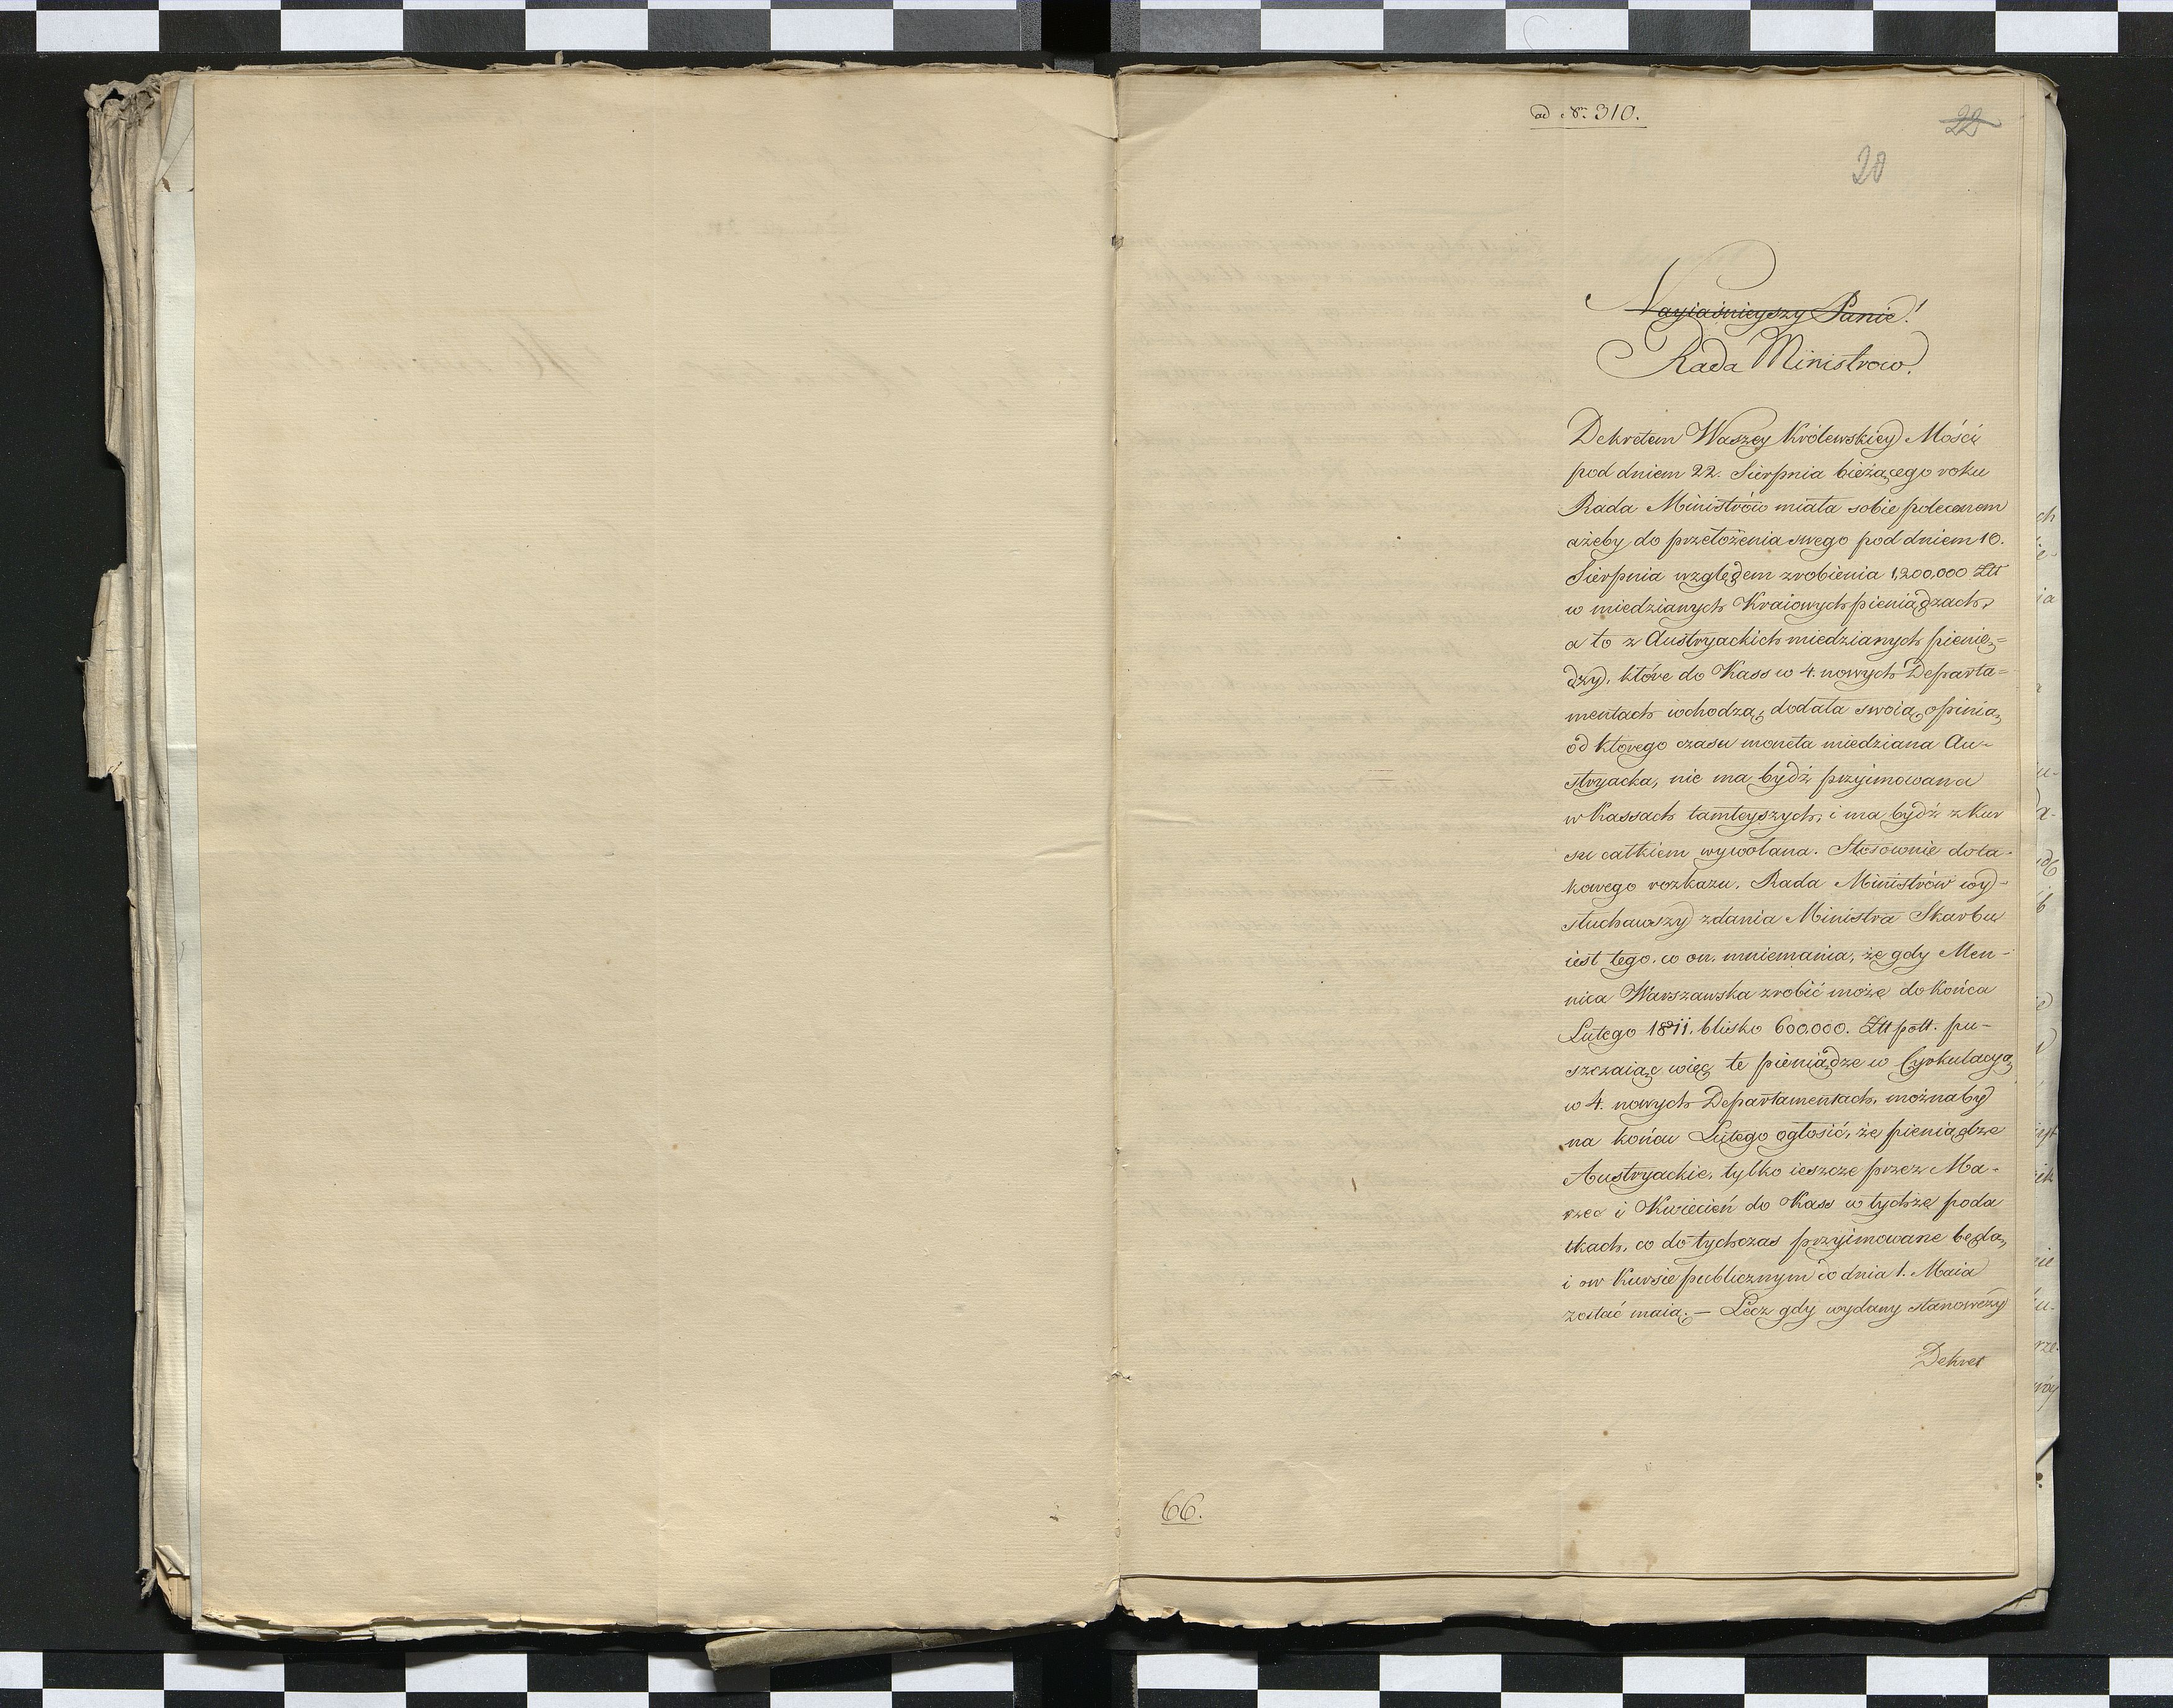 ad Nr. 310.
22
20
Nayiaśnieyszy Panie!
Rada Ministrow.
Dekretem Waszey Królewskiey Mości
pod dniem 22. Sierpnia bieżącego roku
Rada Ministrów miała sobie poleconem
ażeby do przełożenia swego pod dniem 10.
Sierpnia względem zrobienia 1,200,000 Złł
w miedzianych Kraiowych pieniądzach,
a to z Austryackich miedzianych pienię=
dzy, które do Kass w 4. nowych Departa=
mentach wchodzą, dodała swoią opinią,
od ktorego czasu moneta miedziana Au-
stryacka, nie ma bydź przyimowana
w Kassach tamteyszych, i ma bydź z Kur
su całkiem wywołana. Stosownie do ta-
kowego rozkazu, Rada Ministrów wy-
słuchawszy zdania Ministra Skarbu
iest tego, mniemania, że gdy Men-
nica Warszawska zrobić może do Końca
Lutego 1811. blisko 600,000. Złł poll. pu-
szczaiąc więc te pieniądze w Cyrkulacyą
w 4. nowych Departamentach, możnaby
na końcu Lutego ogłosić, że pieniądze
Austryackie, tylko ieszcze przez Ma-
rzec i Kwiecień do Kass w tychże poda
tkach, co do tychczas przyimowane będą,
i w Kursie publicznym do dnia 1. Maia
zostać maią. — Lecz gdy wydany stanowczy
Dekret
66.